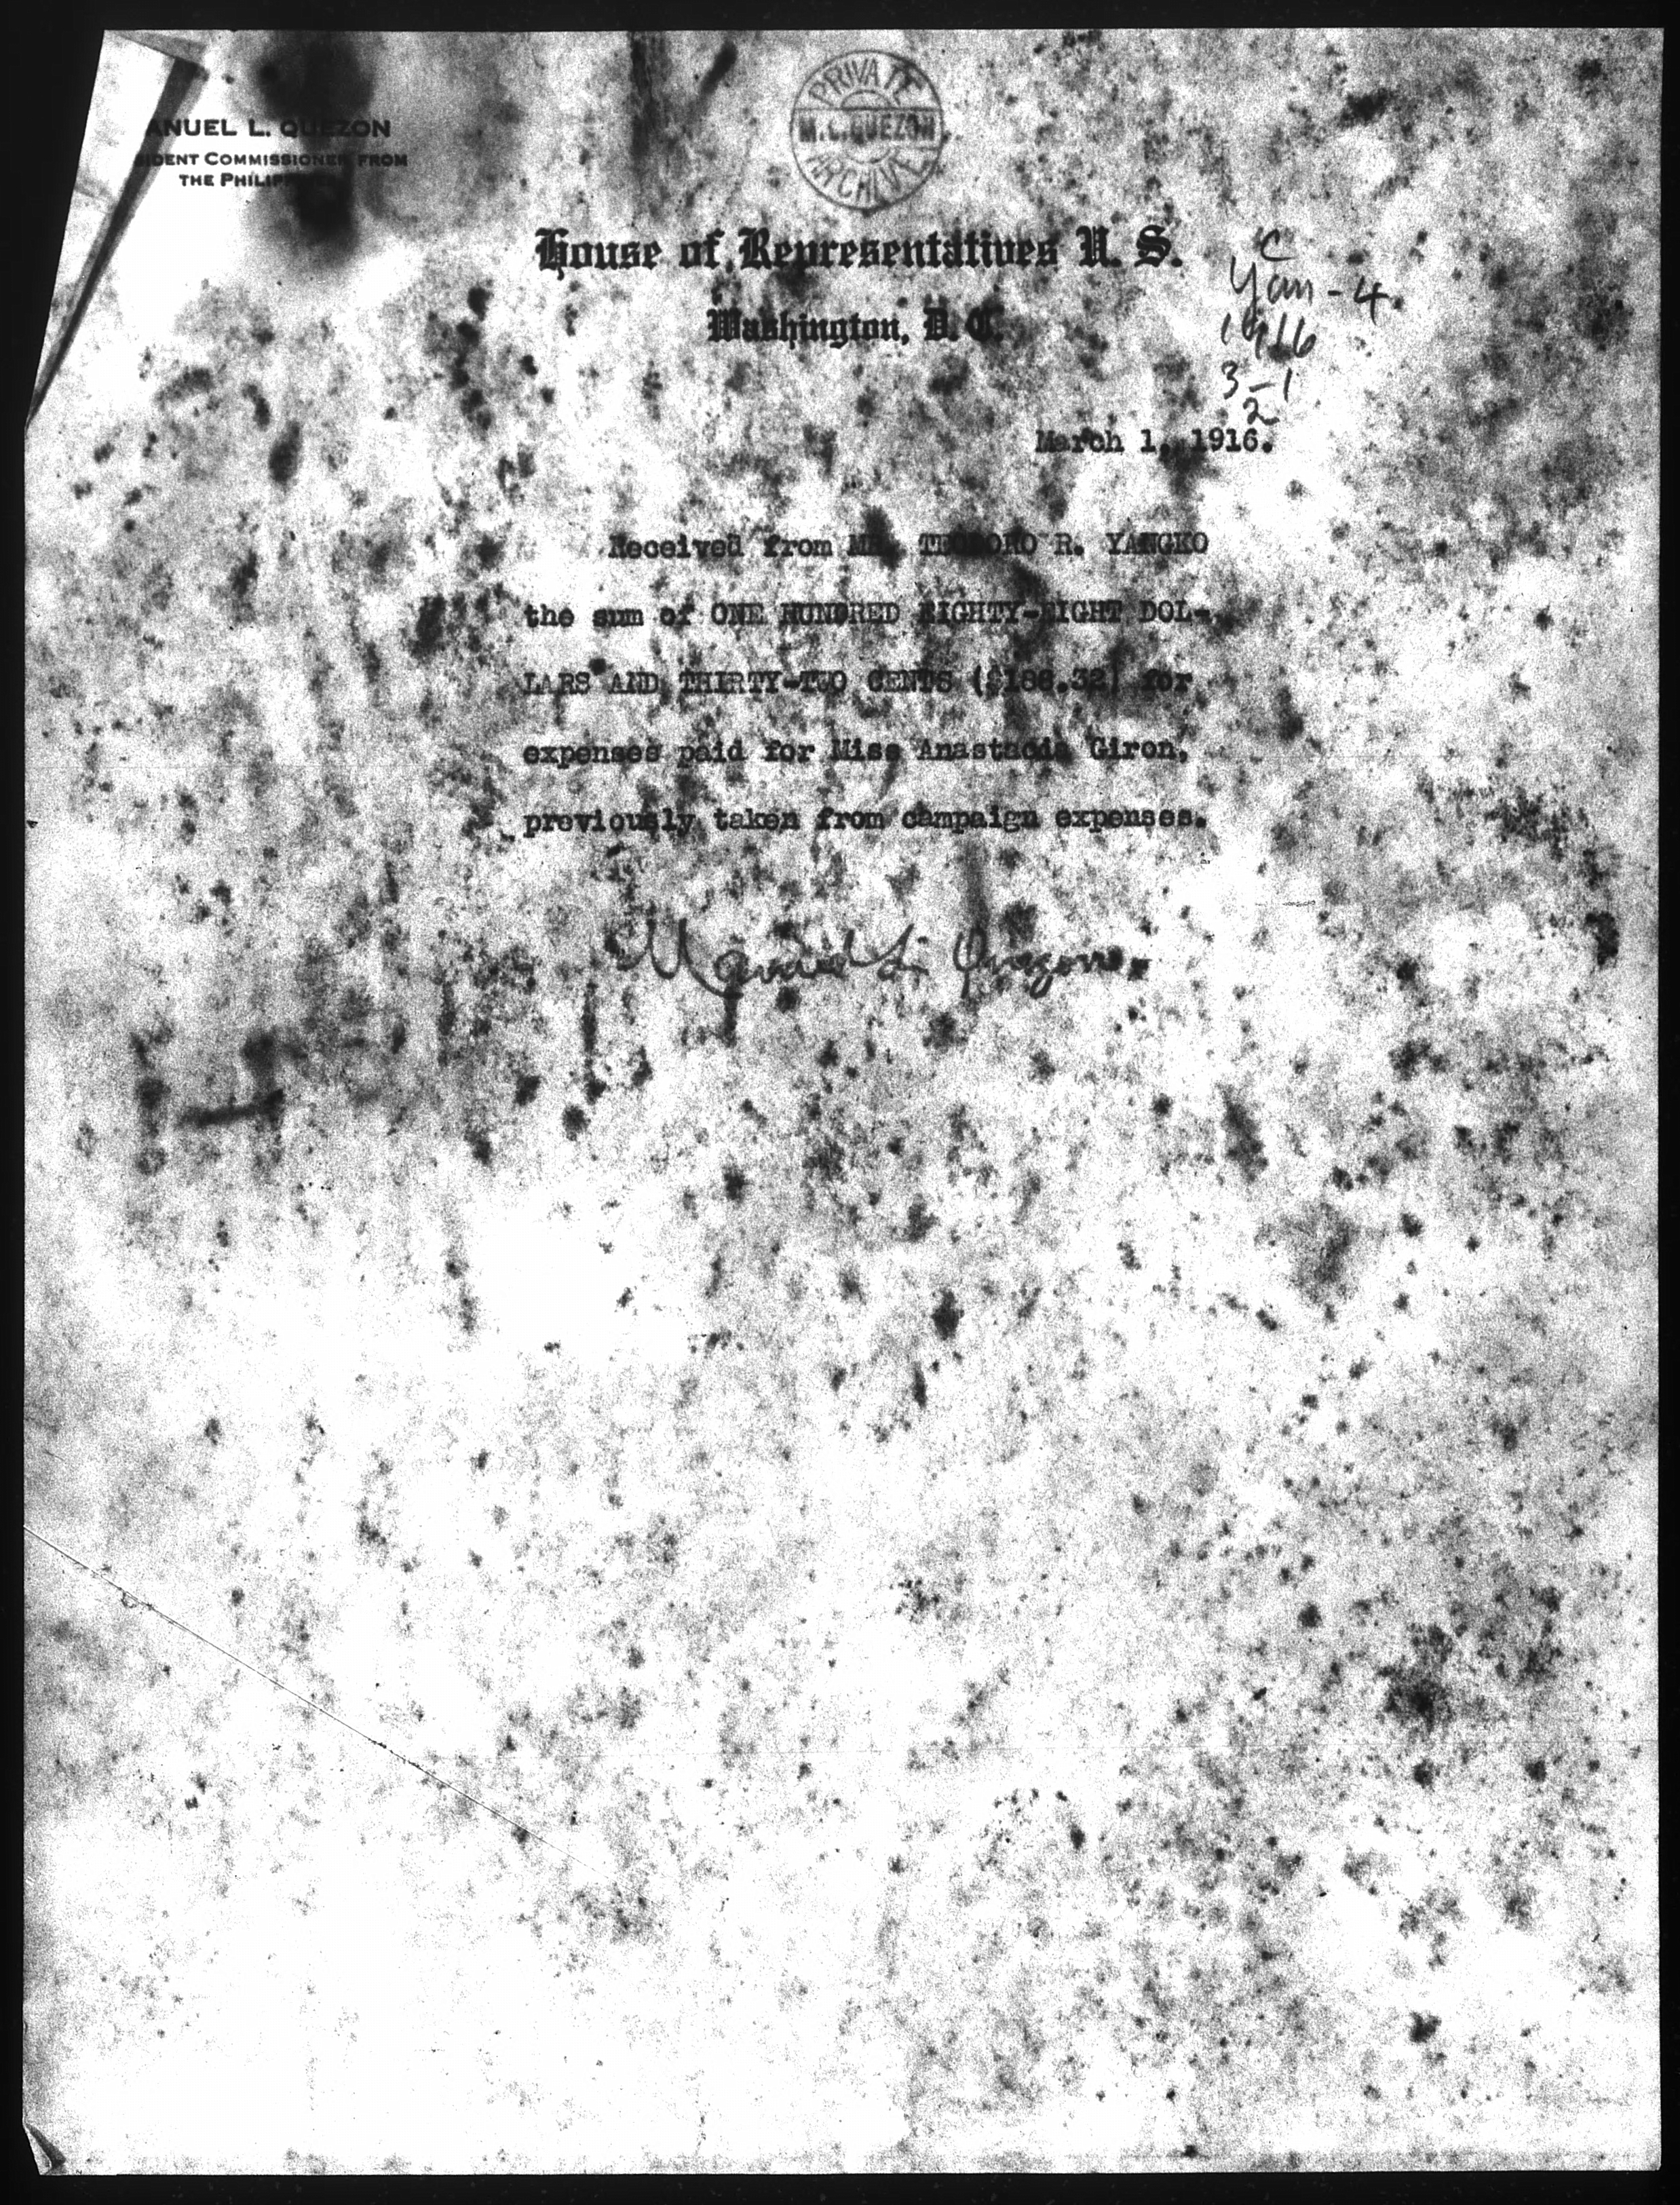 ANUEL L. QUEZON
IDENT COMMISSIONER FROM
THE PHILIPP
PRIVATE
M.L.QUEZON
ARCHIVE
House of Representatives U. S.
Washington, D. C.
C
Yan-4
1916
3-1
2
March 1, 1916.
Received from MR. TEODORO R. YANGKO
the sum of ONE HUNDRED EIGHTY-EIGHT DOL-
LARS AND THIRTY-TWO CENTS ($188.32) for
expenses paid for Miss Anastacia Giron,
previously taken from campaign expenses.
Manuel L. Quezon.